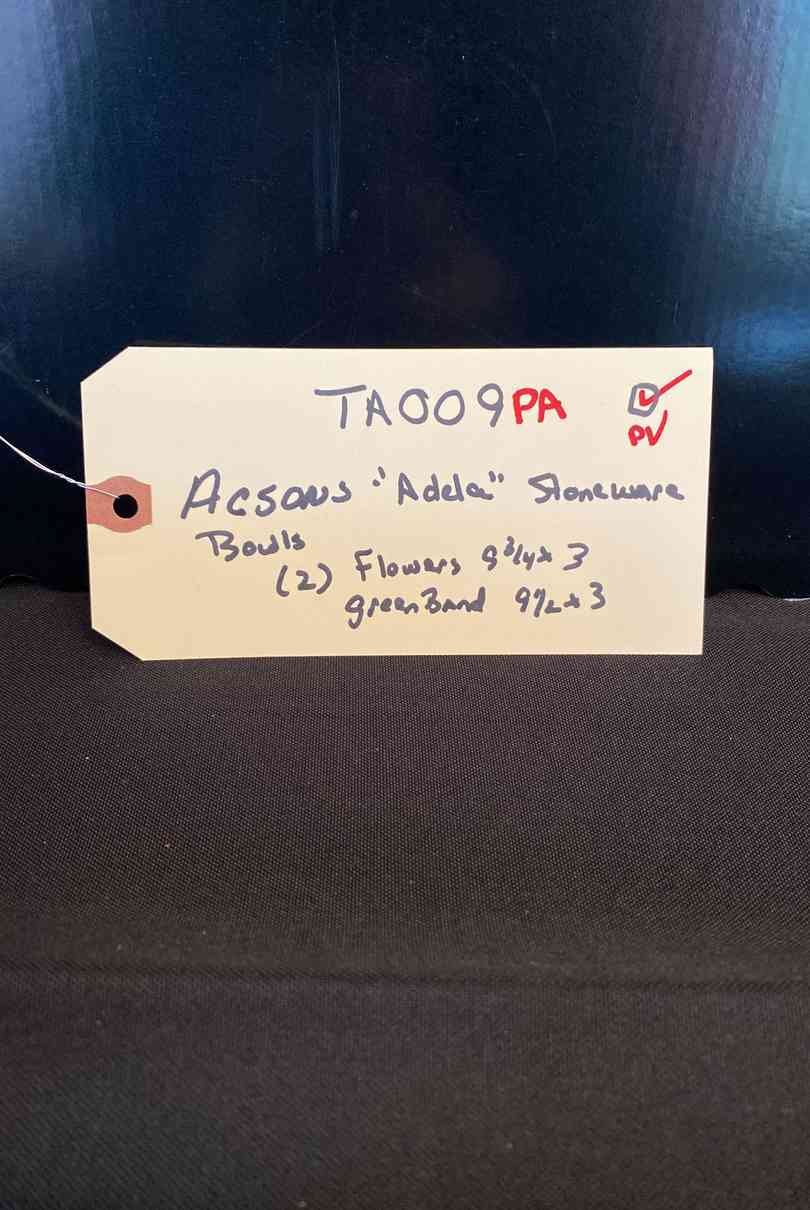 TA009PA
PV
Acsons "Adela" Stoneware
Bowls
(2) Flowers 9 3/4 x 3
green Band 9 1/2 x 3